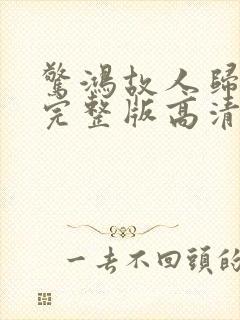 驚鴻故人歸
完整版高清
一去不回頭的